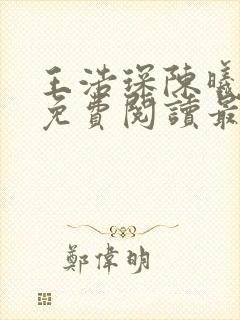 王浩琛陳曦
免費閱讀最
鄭偉明